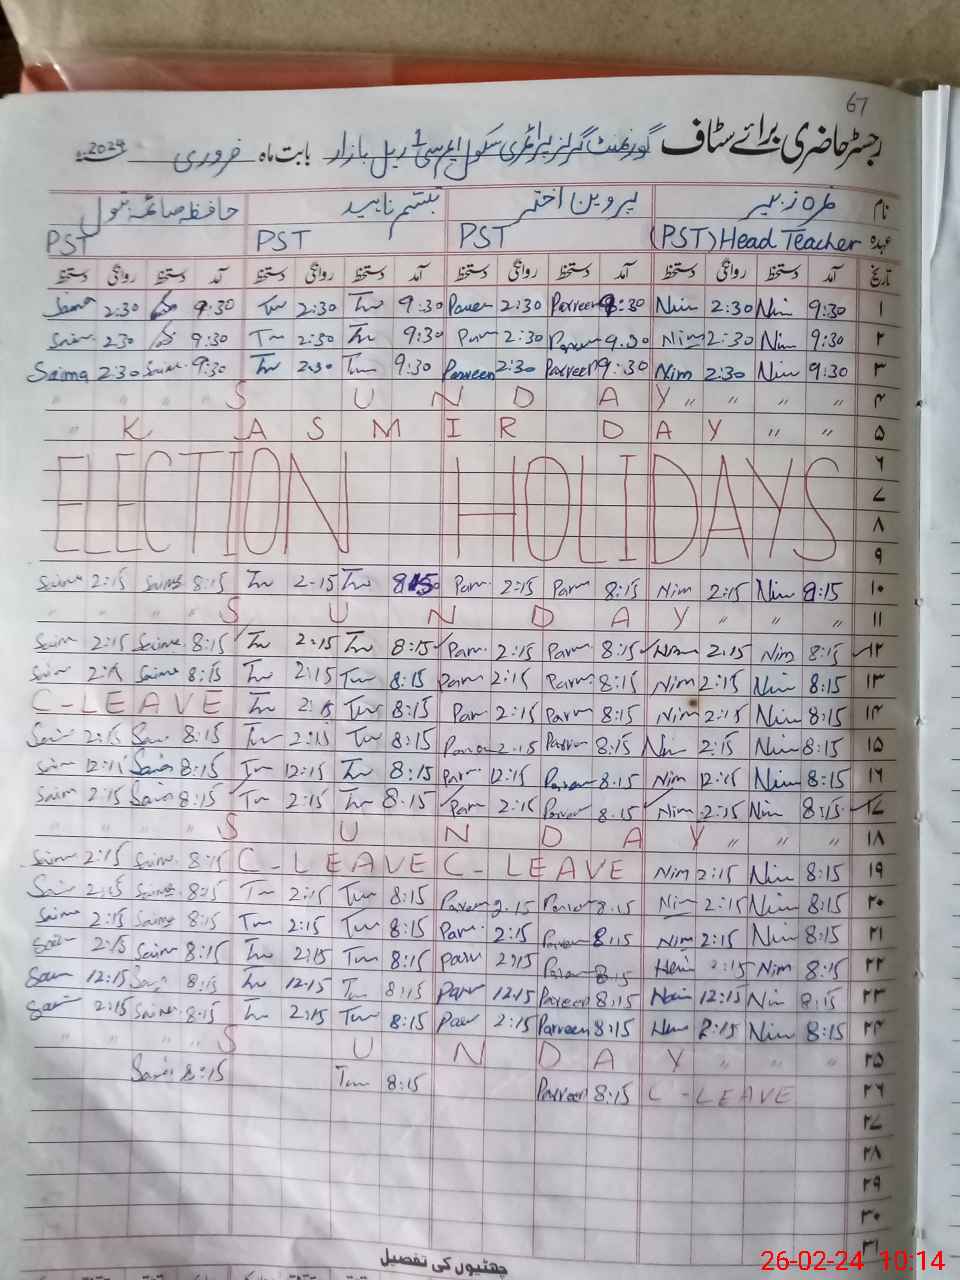 67
رجسٹر حاضری برائے سٹاف گورنمنٹ گرلز پرائمری سکول ایم سی ریل بازار بابت ماہ فروری 2024
نام پروین اختر تبسم ناہید حافظہ صائمہ بتول
عہدہ (PST) Head Teacher PST PST PST
تاریخ آمد دستخط روانگی دستخط آمد دستخط روانگی دستخط آمد دستخط روانگی دستخط آمد دستخط روانگی دستخط
۱ 9:30 Nim 2:30 Nim 9:30 Parveen 2:30 Parveen 9:30 2:30 9:30 2:30 Saima
۲ 9:30 Nim 2:30 Nim 9:30 Parveen 2:30 Parv 9:30 2:30 9:30 2:30 Saima
۳ 9:30 Nim 2:30 Nim 9:30 Parveen 2:30 Parveen 9:30 2:30 9:30 Saima 2:30 Saima
۴ S U N D A Y 〃 〃 〃 〃
۵ 〃 K A S M I R D A Y 〃 〃
۶
۷ ELECTION HOLIDAYS
۸
۹
۱۰ 8:15 Nim 2:15 Nim 8:15 Parv 2:15 Parv 8:15 2:15 8:15 Saima 2:15 Saima
۱۱ S U N D A Y 〃 〃 〃
۱۲ 8:15 Nim 2:15 Nim 8:15 Parv 2:15 Parv 8:15 2:15 8:15 Saima 2:15 Saim
۱۳ 8:15 Nim 2:15 Nim 8:15 Parv 2:15 Parv 8:15 2:15 8:15 Saima 2:15 Saim
۱۴ 8:15 Nim 2:15 Nim 8:15 Parv 2:15 Parv 8:15 2:15 C-LEAVE
۱۵ 8:15 Nim 2:15 Nim 8:15 Parveen 2:15 Parveen 8:15 2:15 8:15 2:15
۱۶ 8:15 Nim 12:15 Nim 8:15 Parveen 12:15 Parv 8:15 12:15 8:15 Saima 12:15 Saim
۱۷ 8:15 Nim 2:15 Nim 8:15 Parveen 2:15 Parv 8:15 2:15 8:15 Saima 2:15 Saim
۱۸ S U N D A Y 〃 〃 〃
۱۹ 8:15 Nim 2:15 Nim C-LEAVE C-LEAVE 8:15 Saima 2:15 Saima
۲۰ 8:15 Nim 2:15 Nim 8:15 Parveen 2:15 Parveen 8:15 2:15 8:15 Saima 2:15
۲۱ 8:15 Nim 2:15 Nim 8:15 Parveen 2:15 Parv 8:15 2:15 8:15 Saima 2:15 Saima
۲۲ 8:15 Nim 2:15 8:15 Parveen 2:15 Parv 8:15 2:15 8:15 Saim 2:15
۲۳ 8:15 Nim 12:15 8:15 Parveen 12:15 Parv 8:15 12:15 8:15 12:15
۲۴ 8:15 Nim 2:15 8:15 Parveen 2:15 Parv 8:15 2:15 8:15 Saima 2:15
۲۵ S U N D A Y 〃 〃 〃
۲۶ C-LEAVE 8:15 Parveen 8:15 8:15 Saima
۲۷
۲۸
۲۹
۳۰
۳۱
چھٹیوں کی تفصیل
26-02-24 10:14